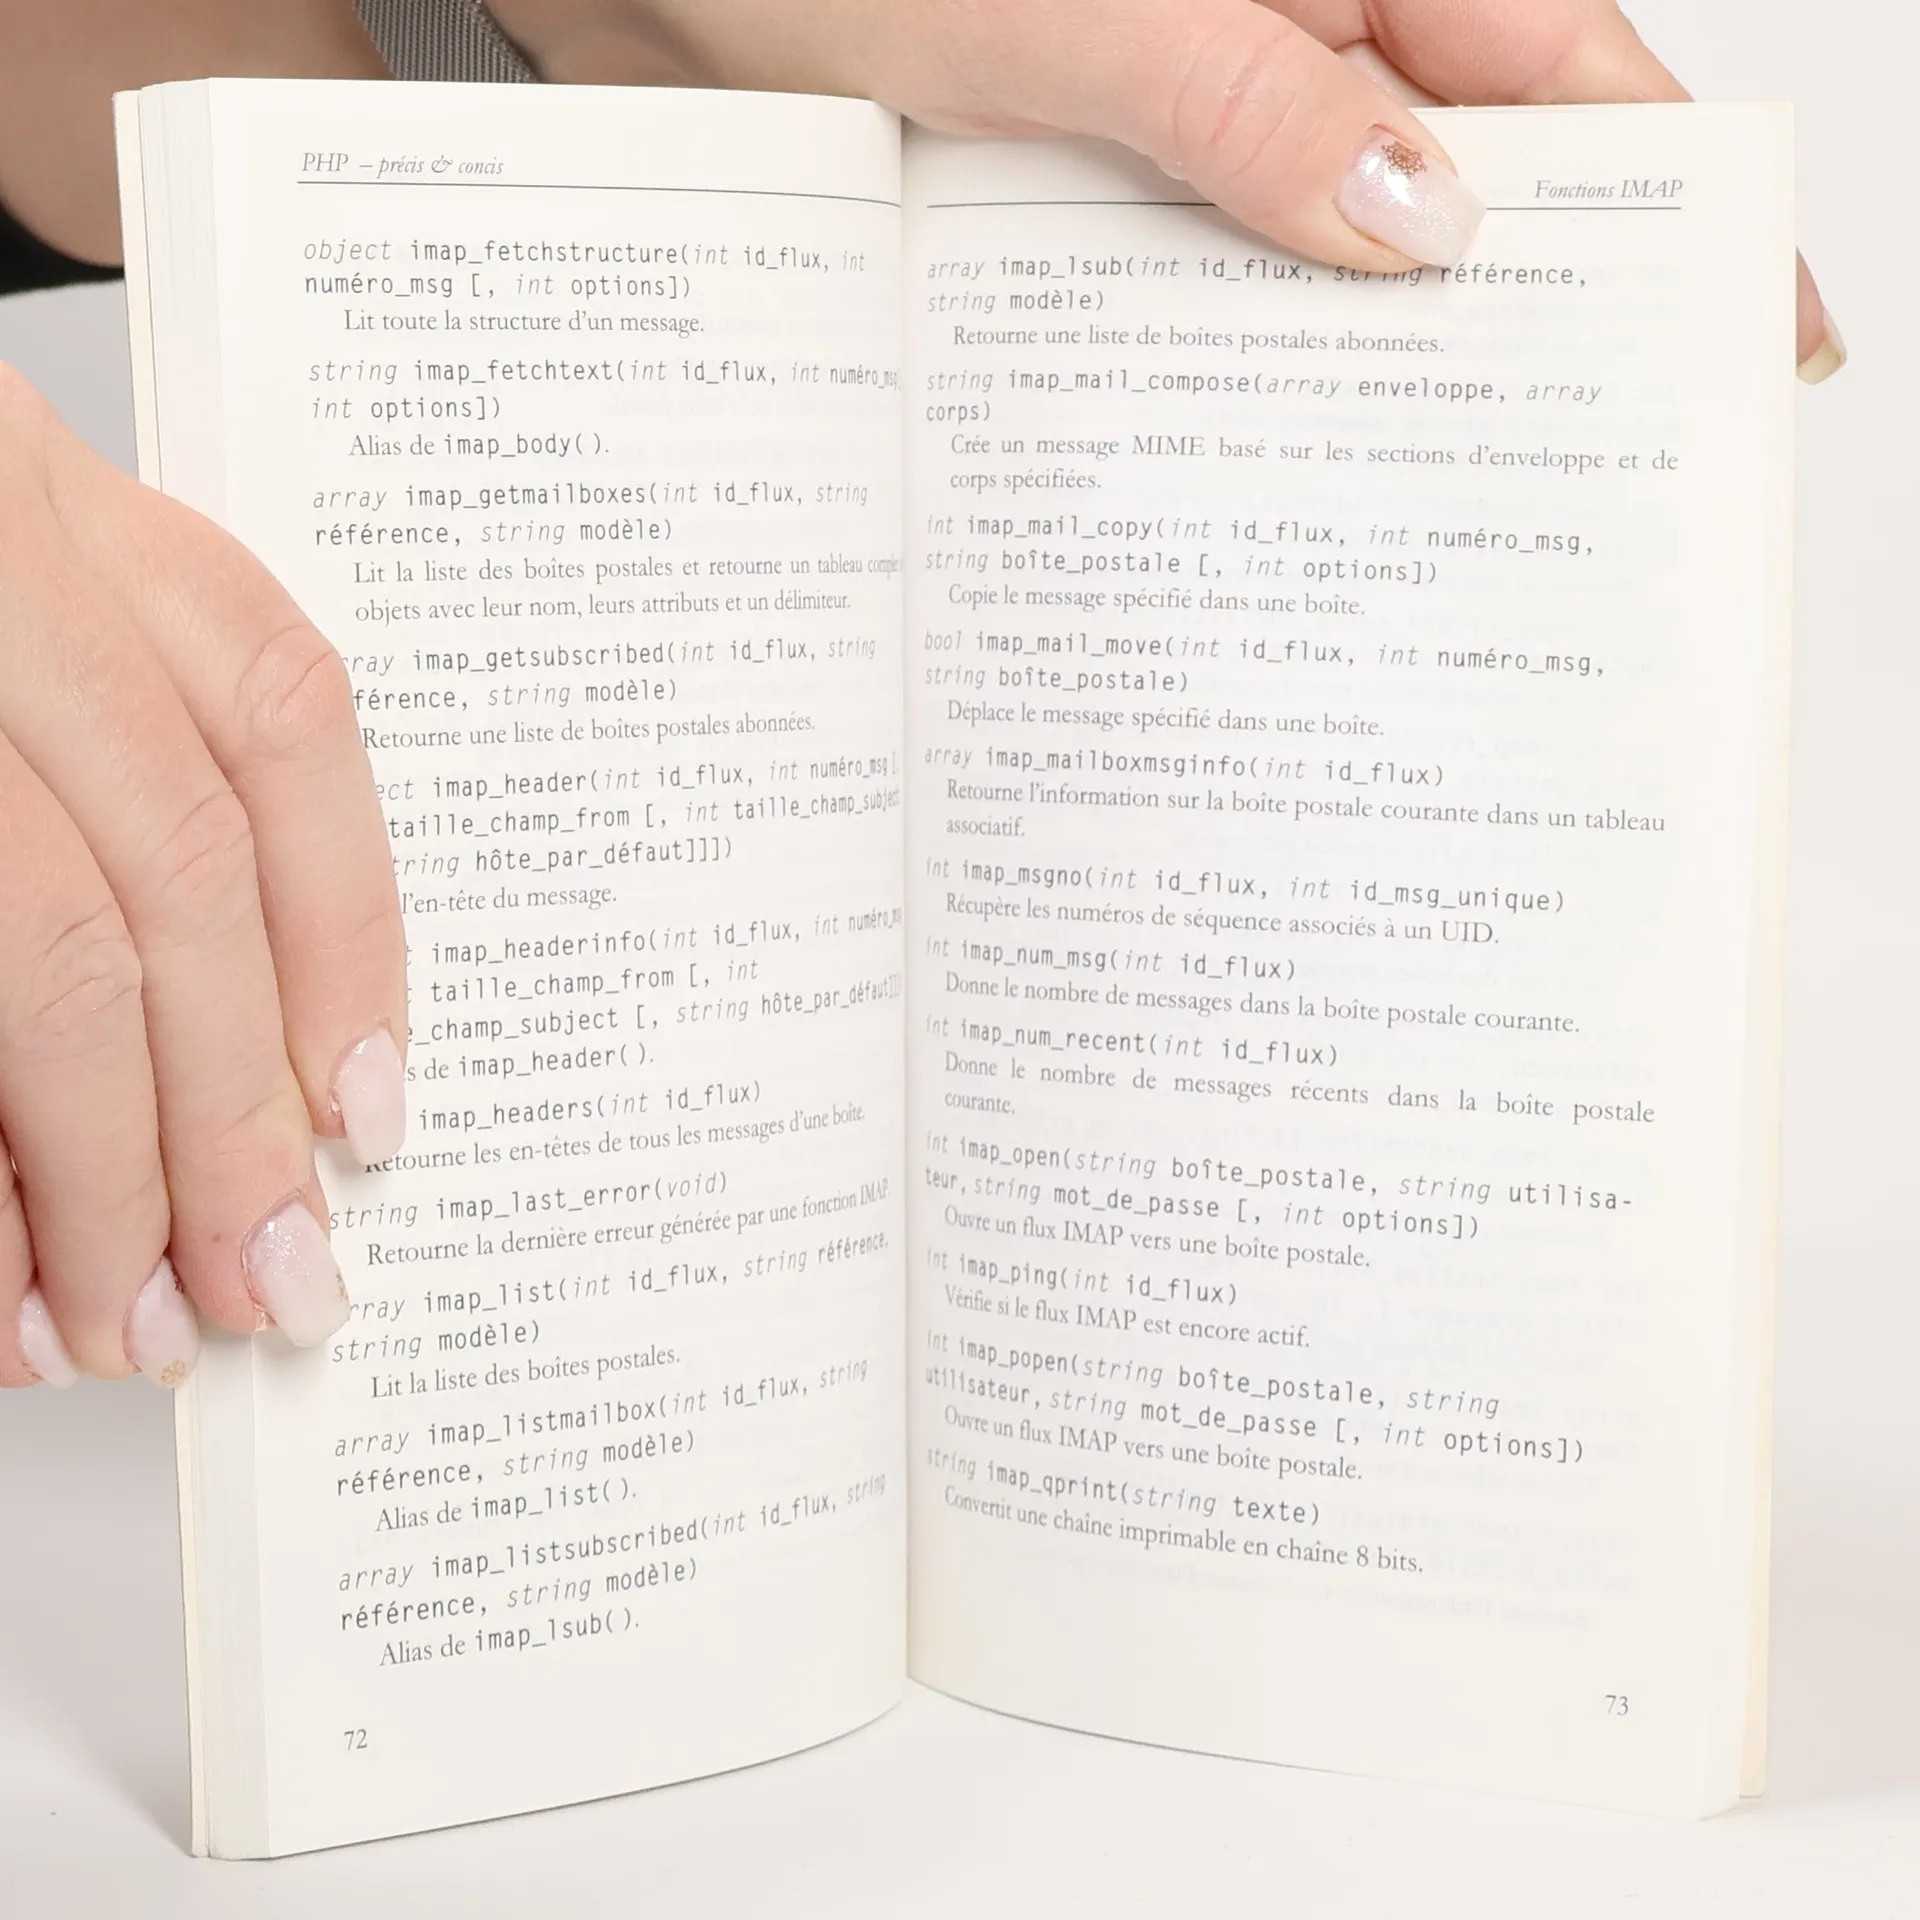 PHP – précis & concis
object imap_fetchstructure(int id_flux, int
numéro_msg [, int options])
Lit toute la structure d'un message.
string imap_fetchtext(int id_flux, int numéro_msg
int options])
Alias de imap_body().
array imap_getmailboxes(int id_flux, string
référence, string modèle)
Lit la liste des boîtes postales et retourne un tableau
objets avec leur nom, leurs attributs et un délimiteur.
imap_getsubscribed(int id_flux, string
string modèle)
Retourne une liste de boîtes postales abonnées.
imap_header(int id_flux, int numéro_msg [,
taille_champ_from [, int taille_champ_subject
hôte_par_défaut]]])
l'en-tête du message.
imap_headerinfo(int id_flux, int numéro_msg
taille_champ_from [, int
string hôte_par_défaut]]])
de imap_header().
imap_headers(int id_flux)
Retourne les en-têtes de tous les messages d'une boîte.
string imap_last_error(void)
Retourne la dernière erreur générée par une fonction IMAP.
imap_list(int id_flux, string référence,
string modèle)
Lit la liste des boîtes postales.
array imap_listmailbox(int id_flux, string
référence, string modèle)
Alias de imap_list().
array imap_listsubscribed(int id_flux, string
référence, string modèle)
Alias de imap_lsub().
72
Fonctions IMAP
array imap_lsub(int id_flux, string référence,
string modèle)
Retourne une liste de boîtes postales abonnées.
string imap_mail_compose(array enveloppe, array
corps)
Crée un message MIME basé sur les sections d'enveloppe et de
corps spécifiées.
int imap_mail_copy(int id_flux, int numéro_msg,
string boîte_postale [, int options])
Copie le message spécifié dans une boîte.
bool imap_mail_move(int id_flux, int numéro_msg,
string boîte_postale)
Déplace le message spécifié dans une boîte.
array imap_mailboxmsginfo(int id_flux)
Retourne l'information sur la boîte postale courante dans un tableau
associatif.
int imap_msgno(int id_flux, int id_msg_unique)
Récupère les numéros de séquence associés à un UID.
int imap_num_msg(int id_flux)
Donne le nombre de messages dans la boîte postale courante.
int imap_num_recent(int id_flux)
Donne le nombre de messages récents dans la boîte postale
courante.
int imap_open(string boîte_postale, string utilisa-
teur, string mot_de_passe [, int options])
Ouvre un flux IMAP vers une boîte postale.
int imap_ping(int id_flux)
Vérifie si le flux IMAP est encore actif.
int imap_popen(string boîte_postale, string
utilisateur, string mot_de_passe [, int options])
Ouvre un flux IMAP vers une boîte postale.
string imap_qprint(string texte)
Convertit une chaîne imprimable en chaîne 8 bits.
73